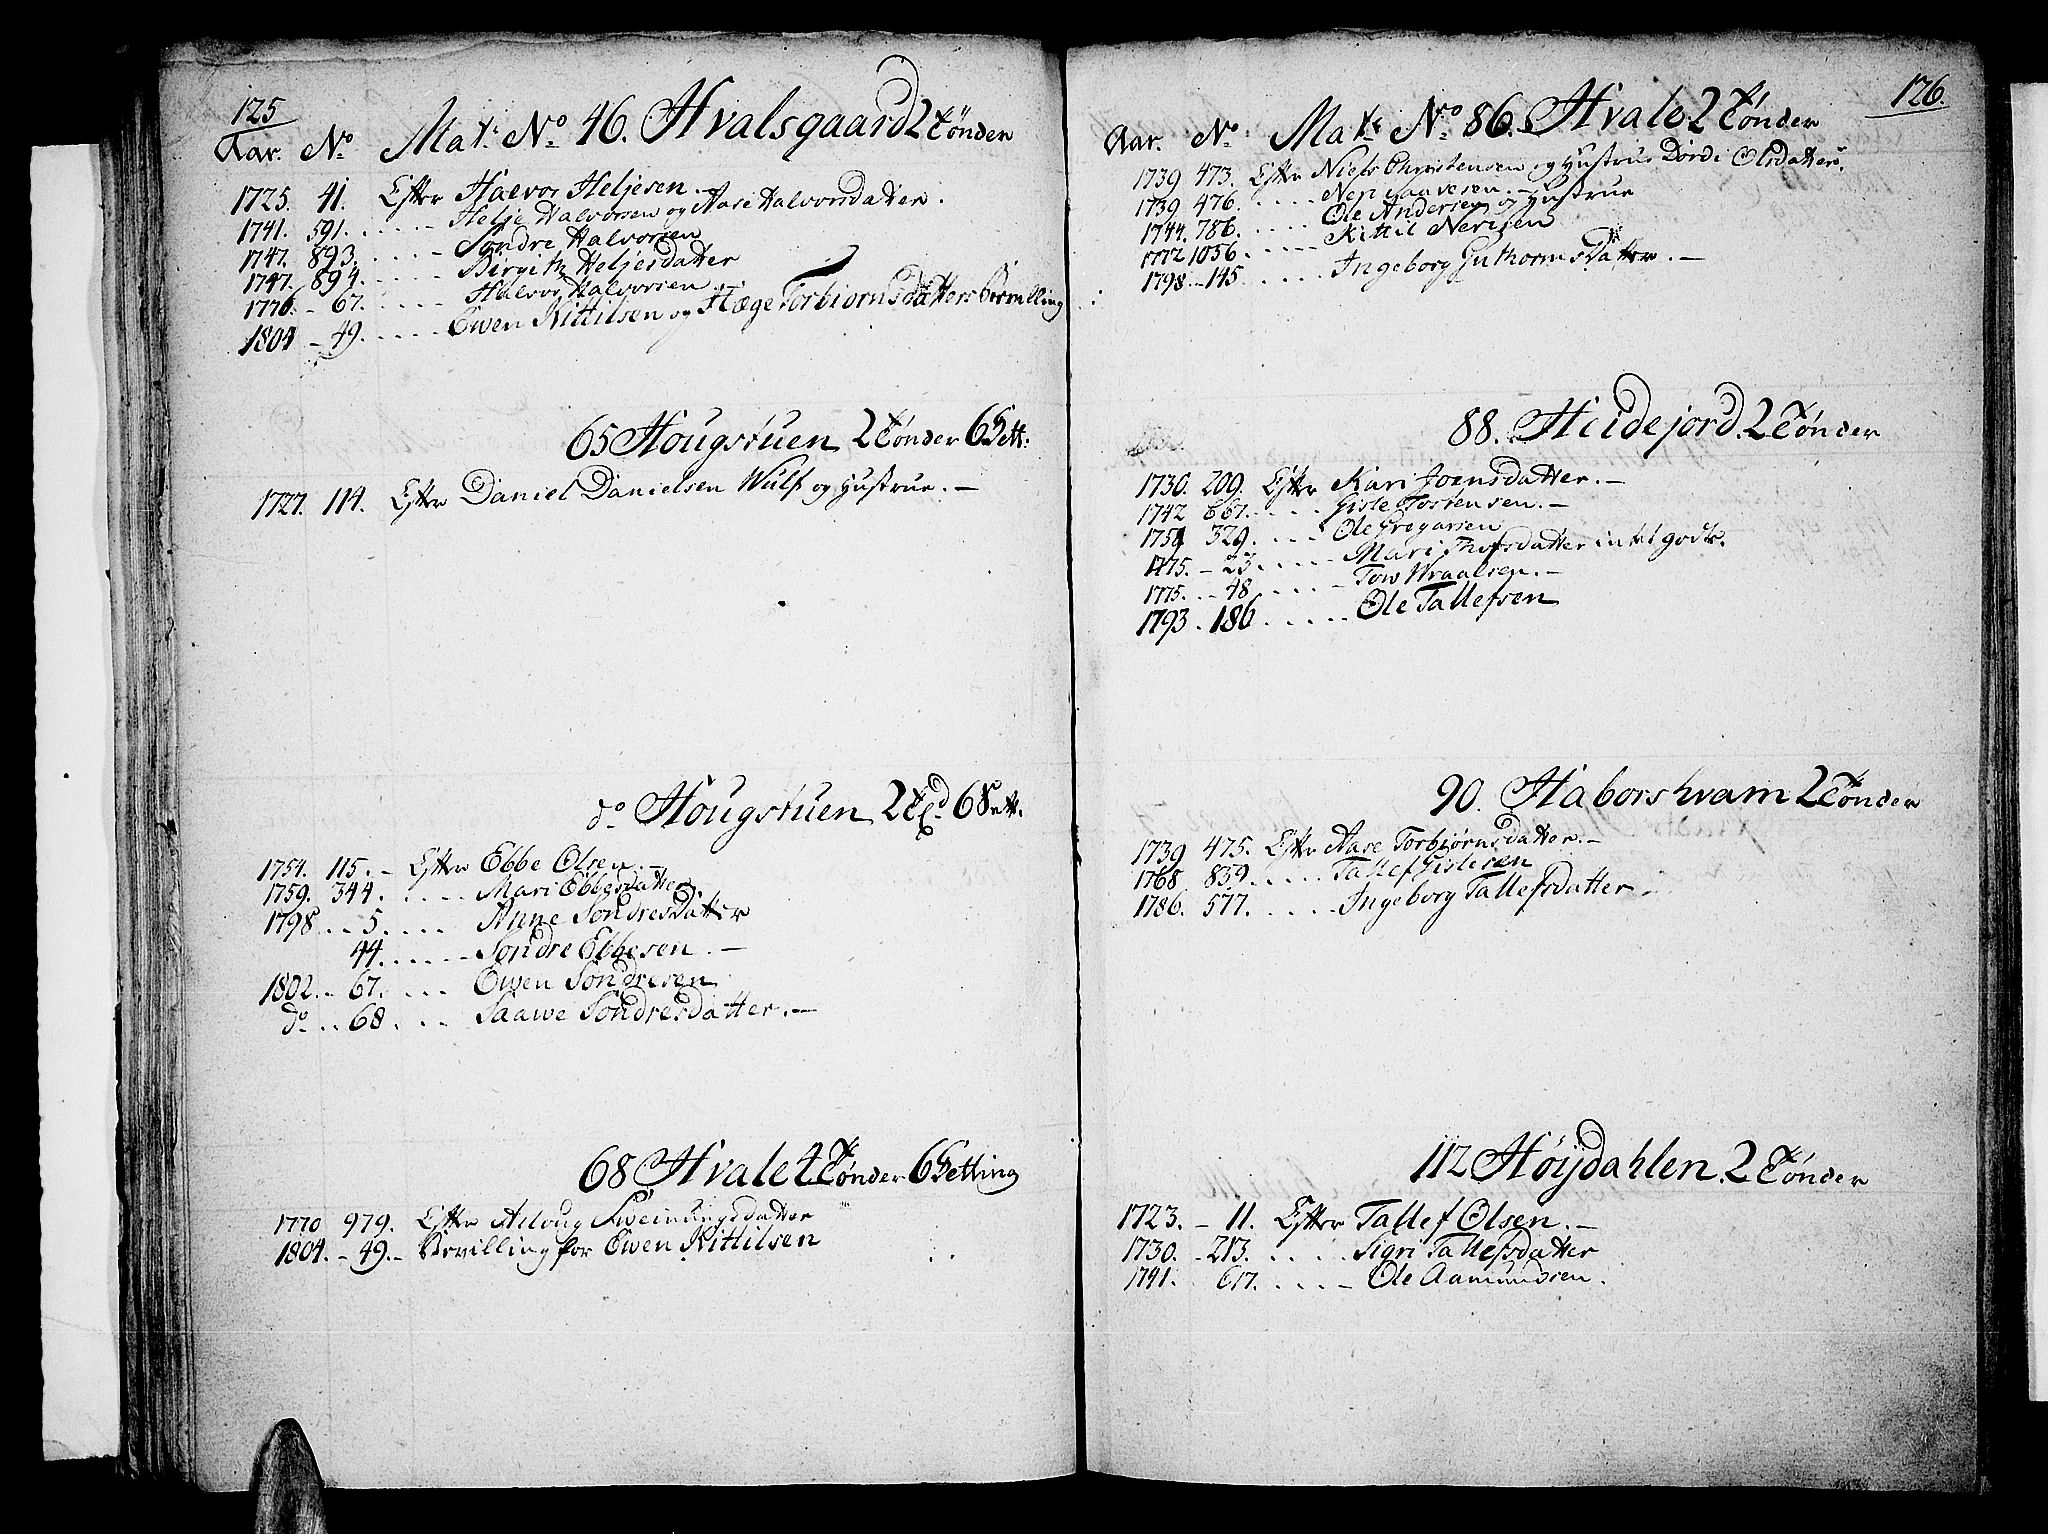 125
Aar. No Mat: No 46. Hvalsgaard 2 Tønder
1725. 41. Efter Halvor Heljesen.
1741. 591. ..... Helje Halvorsen og Aase Halvorsdatter.
1747. 893. ..... Søndre Halvorsen
1747. 894. ..... Birgith Heljesdatter
1776. - 67. .... Halvor Halvorsen
1804 - 49. ..... Ewen Kittilsen og Hæge Torbiørnsdatters Bevilling
65 Hougstuen 2 Tønder 6 Sett:
1727. 114. Efter Daniel Danielsen Wulf og Hustrue. -
do Hougstuen 2 Td 6 Sett.
1754. 115. - Efter Ebbe Olsen. -
1759. 344. .... Mari Ebbesdatter.
1798 .. 5. .... Anne Søndresdatter
44. ..... Søndre Ebbesen. -
1802. - 67. ... Ewen Søndresen
do .. 68. ... Saawe Søndresdatter. -
68 Hvale 4 Tønder 6 Setting
1770 979. Efter Asloug Sweinungsdatter
1804. - 49. - Bevilling for Ewen Kittilsen
126.
Aar. No Mat: No 86. Hvale 2 Tønder
1739 473. Efter Niels Christensen og Hustrue Dordi Olsdatter.
1739 476. .... Neri Saavesen. -
1744. 786. .... Ole Andersen og Hustrue
1772 1056. .... Kittil Nerisen
1798. - 145. .... Ingeborg Guthormsdatter. -
88. Heidejord. 2 Tønder
1730. 209. Efter Kari Joensdatter. -
1742 667. .... Gisle Tostensen. -
1759 329. .... Ole Gregarsen
1775. - 23. .... Mari Thofsdatter intet gods.
1775. .. 48 .... Tow Wraalsen. -
1793. 186. ..... Ole Tallefsen
90. Haborshvam 2 Tønder
1739 475. Efter Aase Torbiørnsdatter. -
1768 839. .... Tallef Gislesen
1786. 577. .... Ingeborg Tallefsdatter -
112 Høijdahlen. 2 Tønder
1723. - 11. Efter Tallef Olsen. -
1730. - 213. .... Sigri Tallefsdatter
1741. 617. .... Ole Aamundsen.